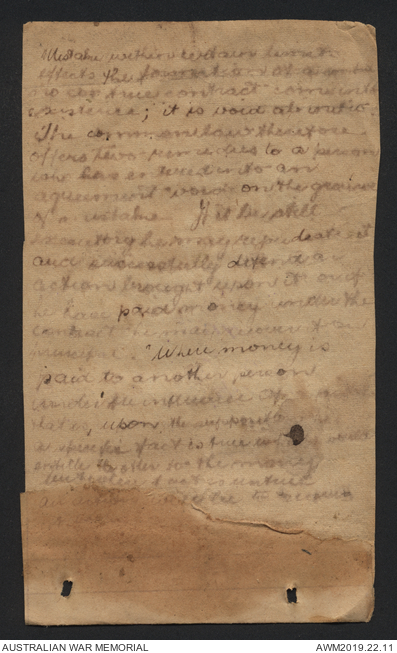 Mistake within certain limits
effects the formation of a contract
no true contract comes into
existence; it is void ab initio.
The common law therefore
offers two remedies to a person
who has entered into an
agreement void on the ground
of mistake If it be still
executory he may repudiate it
and successfully defend an
action brought upon it or if
he have paid money under the
contract he may recover it
"Where money is
paid to another person
under the influence of a
that is, upon the supposition
a specific fact is true
entitle the other to the money
but
to recover
AUSTRALIAN WAR MEMORIAL
AWM2019.22.11